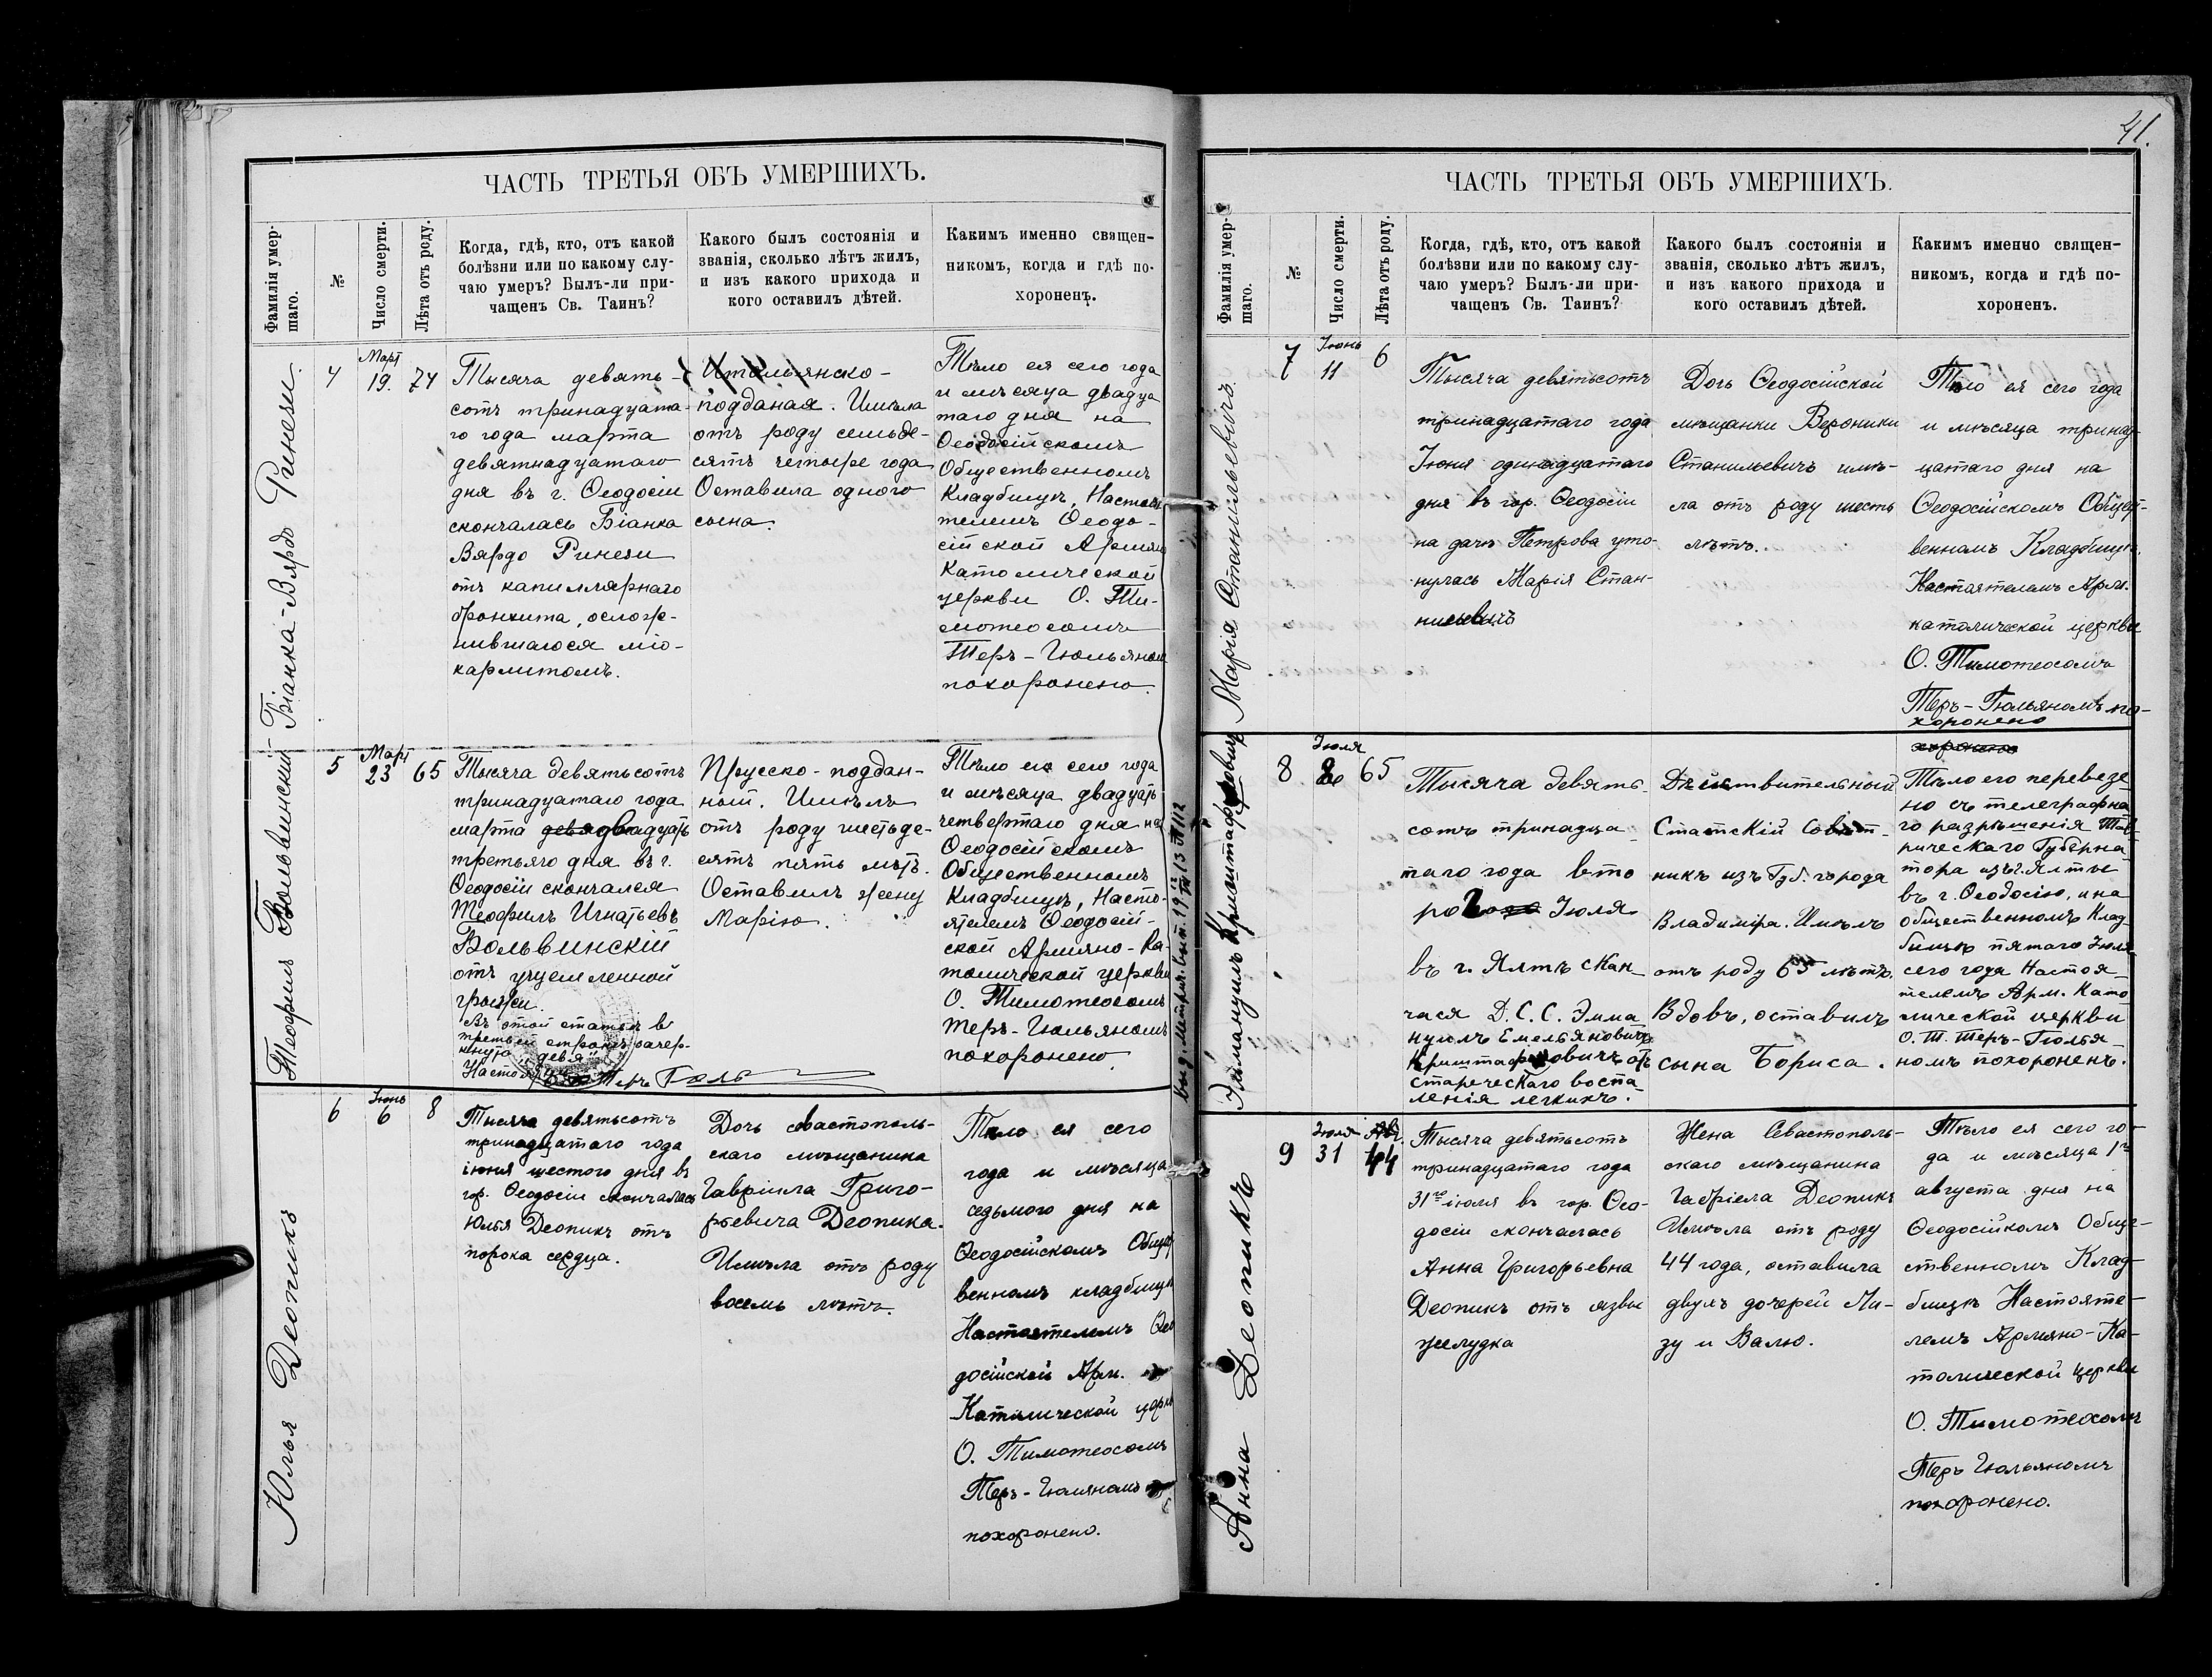 ЧАСТЬ ТРЕТЬЯ ОБЪ УМЕРШИХЪ.
Фамилія умер-
шаго.
№
Число смерти.
Лѣта отъ роду.
Когда, гдѣ, кто, отъ какой
болѣзни или по какому слу-
чаю умеръ? Былъ-ли при-
чащенъ Св. Таинъ?
Какого былъ состоянія и
званія, сколько лѣтъ жилъ,
и изъ какого прихода и
кого оставилъ дѣтей.
Какимъ именно священ-
никомъ, когда и гдѣ по-
хороненъ.
Біанка-Вярдо Ринези.
4
Март
19.
74
Тысяча девять-
сотъ тринадцата-
го года марта
девятнадцатаго
дня въ г. Ѳеодосіи
скончалась Біанка
Вярдо Ринези
отъ капиллярнаго
бронхита, ослож-
нившагося міо-
кардитомъ.
Итальянско-
подданая. Имѣла
отъ роду семьде-
сятъ четыре года
Оставила одного
сына.
Тѣло ея сего года
и мѣсяца двадца
таго дня на
Ѳеодосійскомъ
Общественномъ
Кладбищѣ, Настоя
телемъ Ѳеодо-
сійской Армяно
Католической
церкви О. Ти-
мотеосомъ
Теръ-Гюльяномъ
похоронено.
Теофилъ Вольвинскій
5
Март
23
65
Тысяча девятьсотъ
тринадцатаго года
марта девядвадцать
третьяго дня въ г.
Ѳеодосіи скончался
Теофилъ Игнатьевъ
Вольвинскій
отъ ущемленной
грыжи.
Въ этой статьѣ въ
третьей строкѣ зачер-
кнуто „девя"
Настоя Теръ Гюль
Прусско-поддан-
ный. Имѣлъ
отъ роду шестьде-
сятъ пять лѣтъ.
Оставилъ жену
Марію.
Тѣло его сего года
и мѣсяца двадцать
четвертаго дня на
Ѳеодосійскомъ
Общественномъ
Кладбищѣ, Насто-
ятелемъ Ѳеодосій-
ской Армяно-Ка-
толической церкви
О. Тимотеосомъ
Теръ-Гюльяномъ
похоронено.
Юлья Деопикъ
6
Іюнь
6
8
Тысяча девятьсотъ
тринадцатаго года
іюня шестого дня въ
гор. Ѳеодосіи скончалась
Юлья Деопикъ отъ
порока сердца.
Дочь севастополь-
скаго мѣщанина
Гавріила Григо-
рьевича Деопика.
Имѣла отъ роду
восемь лѣтъ.
Тѣло ея сего
года и мѣсяца
седьмого дня на
Ѳеодосійскомъ Общест
венномъ кладбищѣ
Настоятелемъ Ѳео
досійской Арм.
Католической церкв
О. Тимотеосомъ
Теръ-Гюляномъ
похоронено.
41.
ЧАСТЬ ТРЕТЬЯ ОБЪ УМЕРШИХЪ.
Фамилія умер-
шаго.
№
Число смерти.
Лѣта отъ роду.
Когда, гдѣ, кто, отъ какой
болѣзни или по какому слу-
чаю умеръ? Былъ-ли при-
чащенъ Св. Таинъ?
Какого былъ состоянія и
званія, сколько лѣтъ жилъ,
и изъ какого прихода и
кого оставилъ дѣтей.
Какимъ именно священ-
никомъ, когда и гдѣ по-
хороненъ.
Марія Станильевичъ.
7
Іюнь
11
6
Тысяча девятьсотъ
тринадцатаго года
Іюня одинадцатаго
дня въ гор. Ѳеодосіи
на дачѣ Петрова уто-
нулась Марія Стан-
ильевичъ
Дочь Ѳеодосійской
мѣщанки Вероники
Станильевичъ имѣ-
ла отъ роду шесть
лѣтъ.
Тѣло ея сего года
и мѣсяца тринад-
цатаго дня на
Ѳеодосійскомъ Общест-
венномъ Кладбищѣ.
Настоятелемъ Арм.
католической церкви
О. Тимотеосомъ
Теръ-Гюльяномъ по-
хоронено
хоронено
Эммануилъ Криштафовичъ
8
Іюля
2
65
Тысяча девять-
сотъ тринадца-
таго года вто
рого Іюля
въ г. Ялтѣ скон
чася Д. С. С. Эмма
нуилъ Емельяновичъ
Криштафовичъ отъ
старческаго воспа-
ленія легкихъ.
Дѣйствительный
Статскій Совѣт-
никъ изъ Губ. города
Владиміра. Имѣлъ
отъ роду 65 лѣтъ.
Вдовъ, оставилъ
сына Бориса.
Тѣло его перевезе-
но съ телеграфна
го разрѣшенія Тав-
рическаго Губерна-
тора изъ г. Ялты
въ г. Ѳеодосію, и на
общественномъ Клад-
бищѣ пятаго Іюля
сего года Настоя-
телемъ Арм. Като-
лической церкви
О. Т. Теръ-Гюлья-
номъ похороненъ.
Анна Деопикъ
9
Іюля
31
Авг.
44
Тысяча девятьсотъ
тринадцатаго года
31го іюля въ гор. Ѳео-
досіи скончалась
Анна Григорьевна
Деопикъ отъ язвы
желудка
Жена Севастополь-
скаго мѣщанина
Габріела Деопикъ
Имѣла отъ роду
44 года, оставила
двухъ дочерей Ли-
зу и Валю.
Тѣло ея сего го-
да и мѣсяца 1го
августа дня на
Ѳеодосійкомъ Общe-
ственномъ Клад-
бищѣ Настояте-
лемъ Армяно-Ка-
толической церкви
О. Тимотеосомъ
Теръ Гюльяномъ
похоронено.